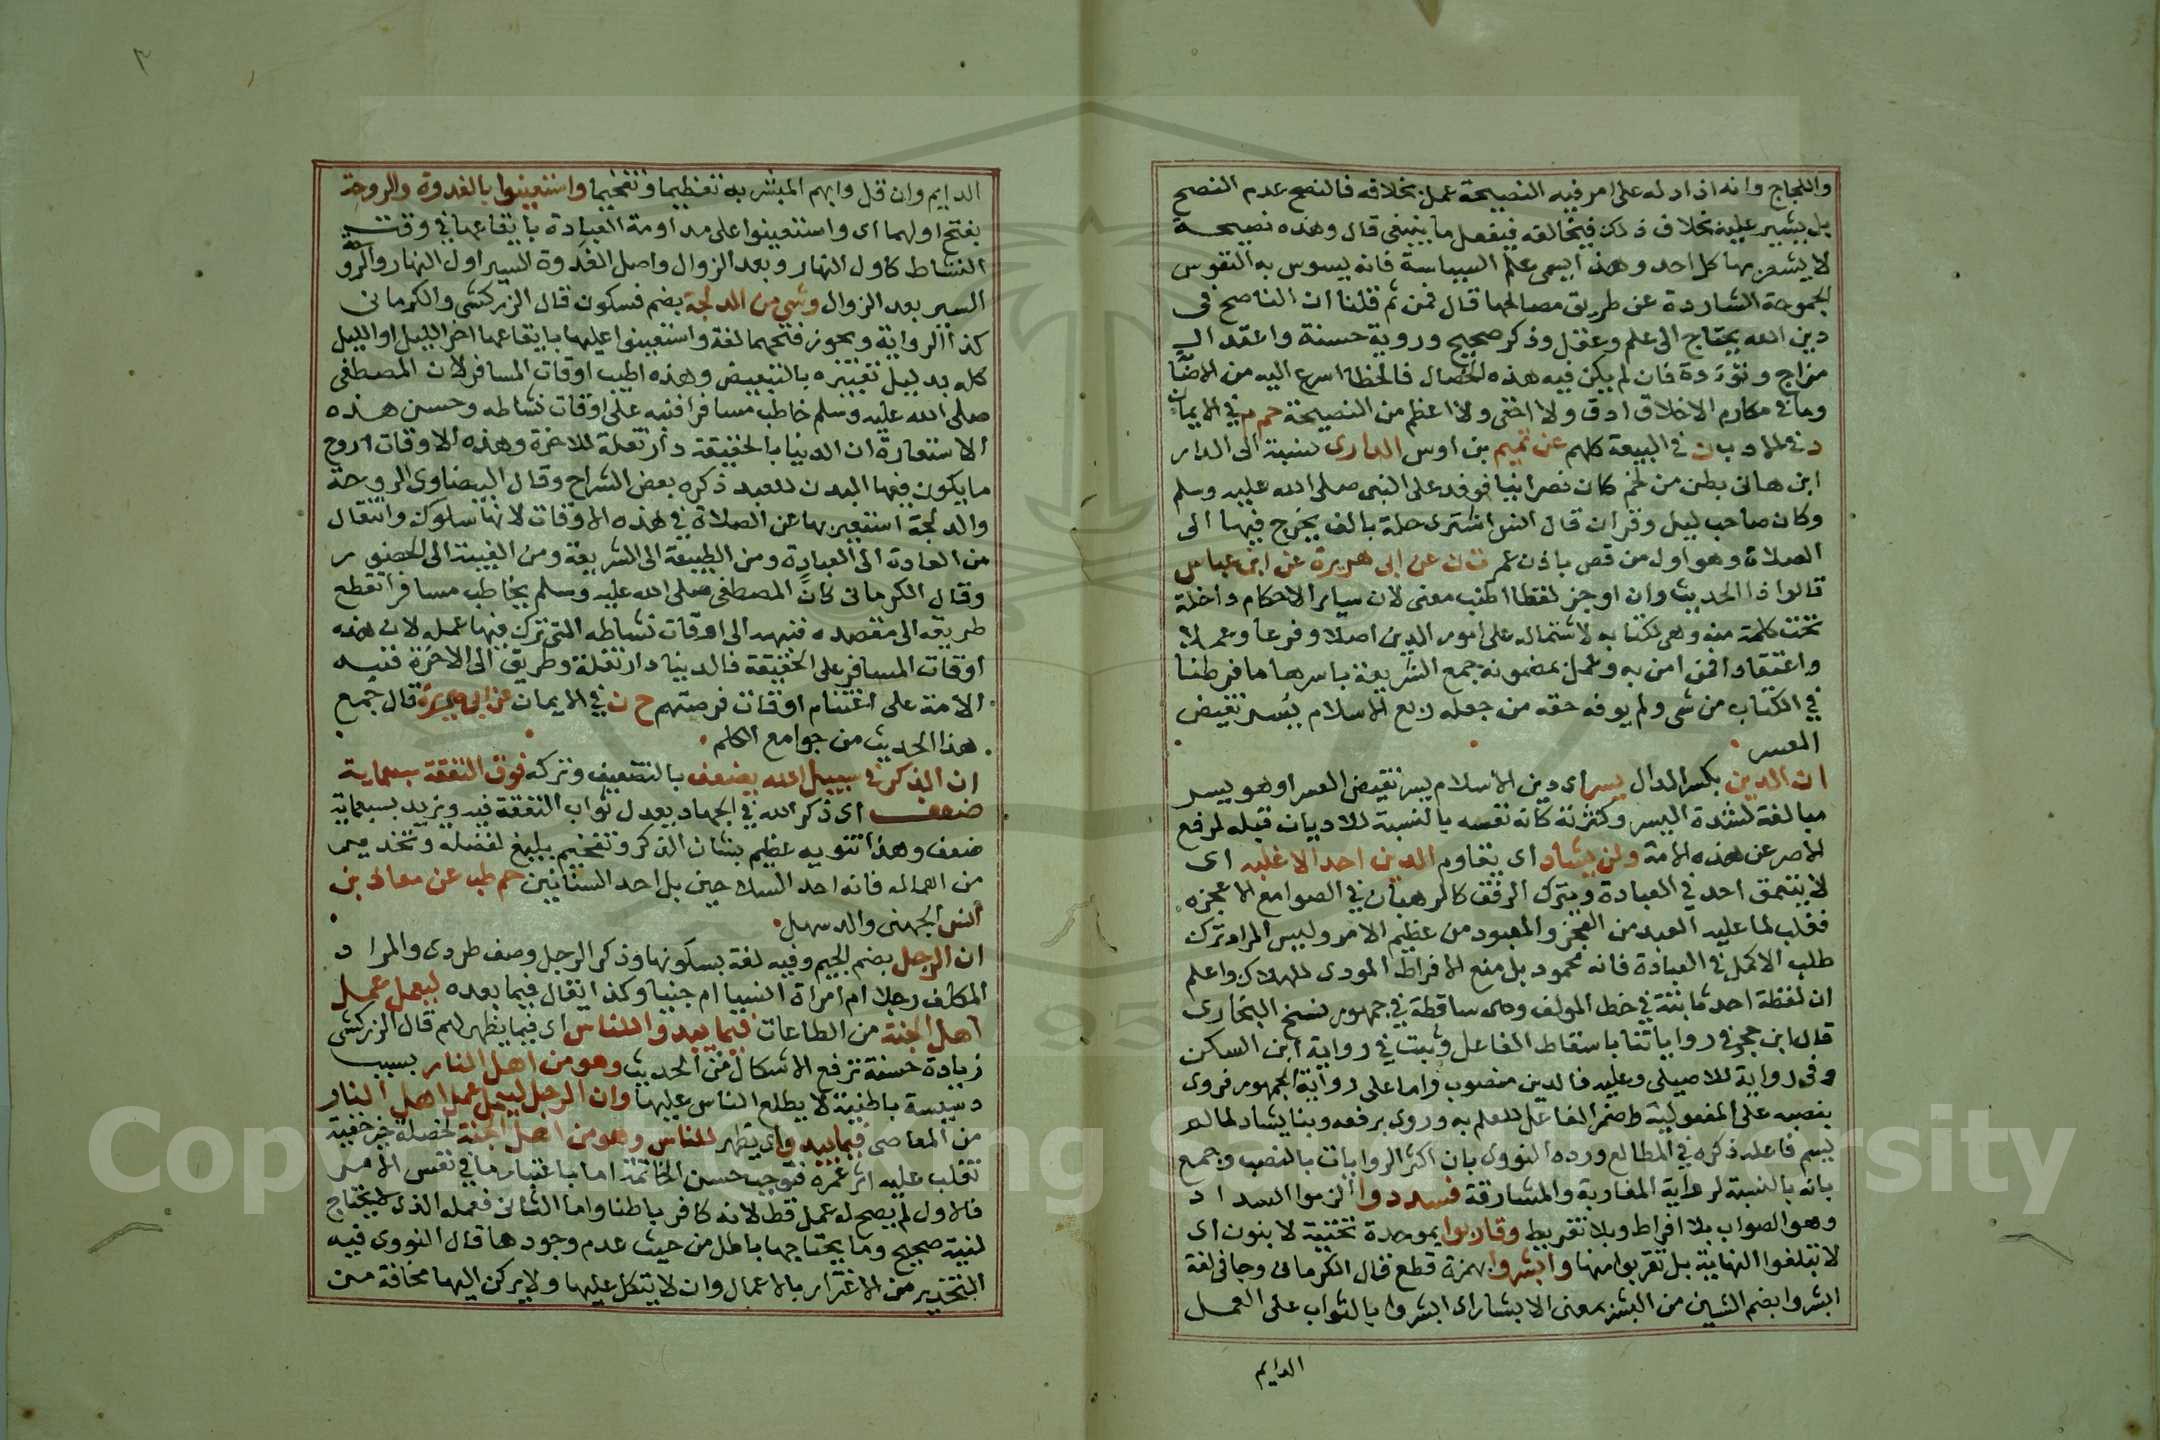 واللجاج وانه اذا دله على امر فيه النصيحة عمل بخلافه فالنصح عدم النصح
بل يشير عليه بخلاف ذلك فيخالفه فيفعل ما ينبغى قال وهذه نصيحة
لا يشعر بها كل احد وهذا يسمى علم السياسة فانه يسوس به النفوس
الجموحة الشاردة عن طريق مصالحها قال فمن ثم قلنا ان الناصح فى
دين الله يحتاج الى علم وعقل وفكر صحيح وروية حسنة واعتدال
مزاج وتؤدة فان لم يكن فيه هذه الخصال فالخطا اسرع اليه من الاصابة
وما فى مكارم الاخلاق ادق ولا اخفى ولا اعظم من النصيحة حم م في الايمان
د في الادب ن في البيعة كلهم عن تميم بن اوس الدارى نسبة الى الدار
ابن هانى بطن من لخم كان نصرانيا فوفد على النبى صلى الله عليه وسلم
وكان صاحب ليل وقران قال انس اشترى حلة بالف يخرج فيها الى
الصلاة وهو اول من قص باذن عمر ت ن عن ابى هريرة عن ابن عباس
قالوا ذا الحديث وان اوجز لفظا اطنب معنى لان ساير الاحكام داخلة
تحت كلمة منه وهى لكتابه لاشتماله على امور الدين اصلا وفرعا وعملا
واعتقادا فمن امن به وعمل بمضمونه جمع الشريعة باسرها ما فرطنا
في الكتاب من شى ولم يوفه حقه من جعله ربع الاسلام يسر نقيض
العسر
ان الدين بكسر الدال يسر اى دين الاسلام يسر نقيض العسر او هو يسر
مبالغة لشدة اليسر وكثرته كانه نفسه بالنسبة للاديان قبله لرفع
الاصر عن هذه الامة ولن يشاد اى يقاوم الدين احد الا غلبه اى
لا يتعمق احد في العبادة ويترك الرفق كالرهبان في الصوامع الا عجزه
فغلب لما عليه العبد من العجز والمعبود من عظيم الامر وليس المراد ترك
طلب الاكمل في العبادة فانه محمود بل منع الافراط المودى للهلاك واعلم
ان لفظة احد ثابتة في خط المولف وهى ساقطة في جمهور نسخ البخارى
قال ابن حجر فى رواياتنا باسقاط الفاعل وثبت في رواية ابن السكن
وفى رواية للاصيلى وعليه فالدين منصوب واما على رواية الجمهور فروى
بنصبه على المفعولية واضمر الفاعل للعلم به وروى برفعه وبنا يشاد لما لم
يسم فاعله ذكره في المطالع ورده النووى بان اكثر الروايات بالنصب وجمع
بانه بالنسبة لرواية المغاربة والمشارقة فسددوا الزموا السداد
وهو الصواب بلا افراط وبلا تفريط وقاربوا بموحدة تحتية لا بنون اى
لا تبلغوا النهاية بل تقربوا منها وابشروا بهمزة قطع قال الكرمانى وجا فى لغة
ابشروا بضم الشين من البشر بمعنى الابشار اى ابشروا بالثواب على العمل
الدايم
الدايم وان قل وابهم المبشر به تعظيما وتفخيما واستعينوا بالغدوة والروحة
بفتح اولهما اى واستعينوا على مداومة العبادة بايقاعها في وقت
النشاط كاول النهار وبعد الزوال واصل الغدوة السير اول النهار والروحة
السير بعد الزوال وشى من الدلجة بضم فسكون قال الزركشى والكرمانى
كذا الرواية ويجوز فتحهما لغة واستعينوا عليها بايقاعها اخر الليل او الليل
كله بدليل تعبيره بالتبعيض وهذه اطيب اوقات المسافر لان المصطفى
صلى الله عليه وسلم خاطب مسافرا فنبه على اوقات نشاطه وحسن هذه
الاستعارة ان الدنيا بالحقيقة دار نقلة للاخرة وهذه الاوقات اروح
ما يكون فيها البدن للعبد ذكره بعض الشراح وقال البيضاوى الروحة
والدلجة استعير بها عن الصلاة في هذه الاوقات لانها سلوك وانتقال
من العادة الى العبادة ومن الطبيعة الى الشريعة ومن الغيبة الى الحضور
وقال الكرمانى كان المصطفى صلى الله عليه وسلم يخاطب مسافرا تقطع
طريقه الى مقصده فنبهه الى اوقات نشاطه التى ترك فيها عمله لان هذه
اوقات المسافر على الحقيقة فالدنيا دار نقلة وطريق الى الاخرة فنبه
الامة على اغتنام اوقات فرصتهم خ ن في الايمان عن ابى هريرة قال جمع
هذا الحديث من جوامع الكلم
ان الذكر في سبيل الله يضعف بالتضعيف وتركه فوق النفقة سبعماية
ضعف اى ذكر الله في الجهاد يعدل ثواب النفقة فيه ويزيد بسبعماية
ضعف وهذا تنويه عظيم بشان الذكر وتفخيم بليغ لفضله وتحذير
من اهماله فانه احد السلاحين بل احد السنانين حم طب عن معاذ بن
انس الجهنى والد سهل
ان الرجل بضم الجيم وفيه لغة بسكونها وذكر الرجل وصف طردى والمراد
المكلف رجلا ام امراة انسيا ام جنيا وكذا يقال فيما بعده ليعمل عمل
اهل الجنة من الطاعات فيما يبدو للناس اى فيما يظهر لهم قال الزركشى
زيادة حسنة ترفع الاشكال من الحديث وهو من اهل النار بسبب
دسيسة باطنية لا يطلع الناس عليها وان الرجل ليعمل عمل اهل النار
من المعاصى فيما يبدو اى يظهر للناس وهو من اهل الجنة لخصلة خير خفية
تغلب عليه اثر عمره فتوجب حسن الخاتمة اما باعتبار ما في نفس الامر
فالاول لم يصح له عمل قط لانه كافر باطنا واما الثانى فعمله الذى لا يحتاج
لنية صحيح وما يحتاجها باطل من حيث عدم وجودها قال النووى فيه
التحذير من الاغترار بالاعمال وان لا يتكل عليها ولا يركن اليها مخافة من